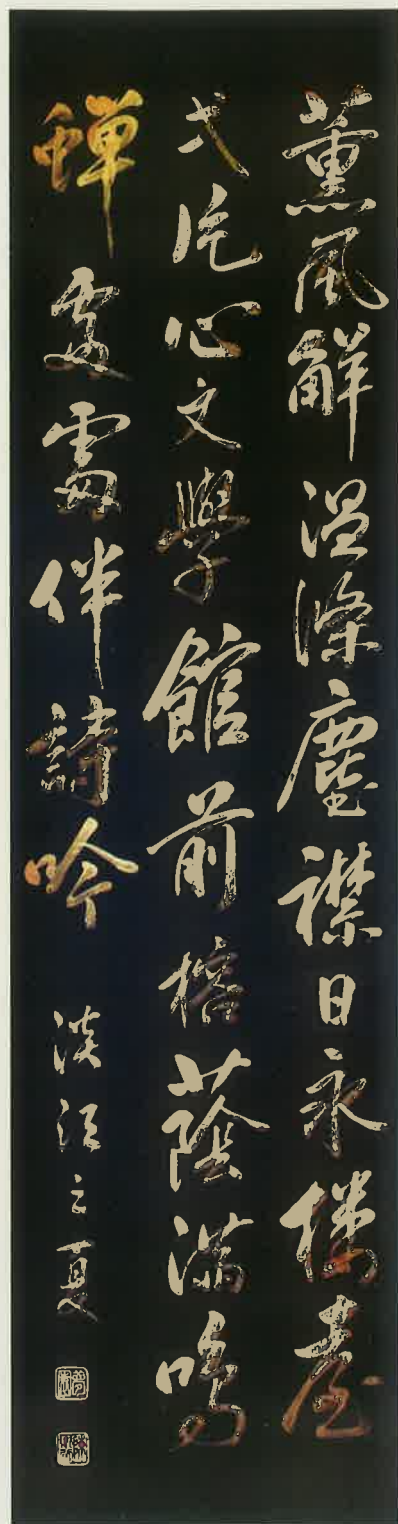 薰風解溫滌塵襟日永樓臺
弌片心文學館前榕蔭滿鳴
蟬處處伴詩吟
淡江之夏